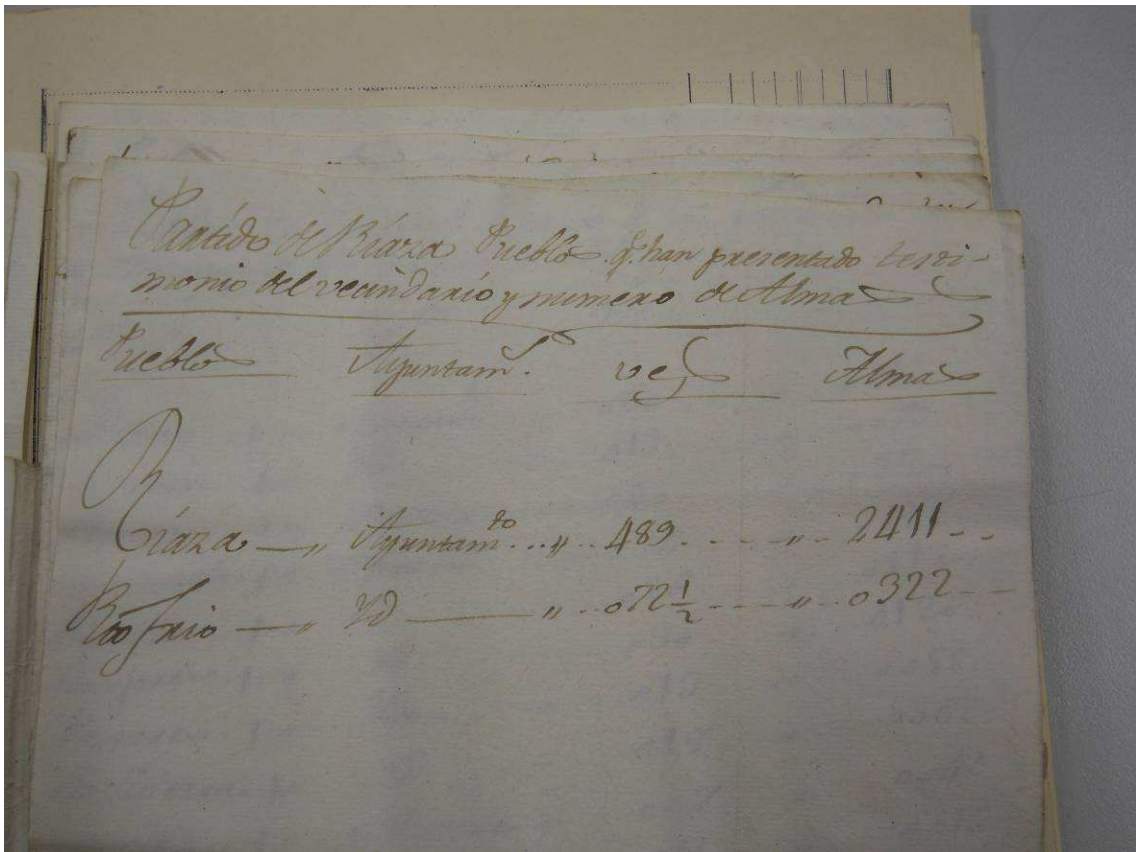 Partido de Riaza Pueblos q.e han presentado testi-
monio del vecindario y numero de Almas
Pueblos Ayuntam.s vec.s Almas
Riaza — „ Ayuntam.to .. „ .. 489 . - - - „ .. 2411 - -
Rio frio — „ Yd —— „ - - 072 1/2 - - - „ - 0322 - -